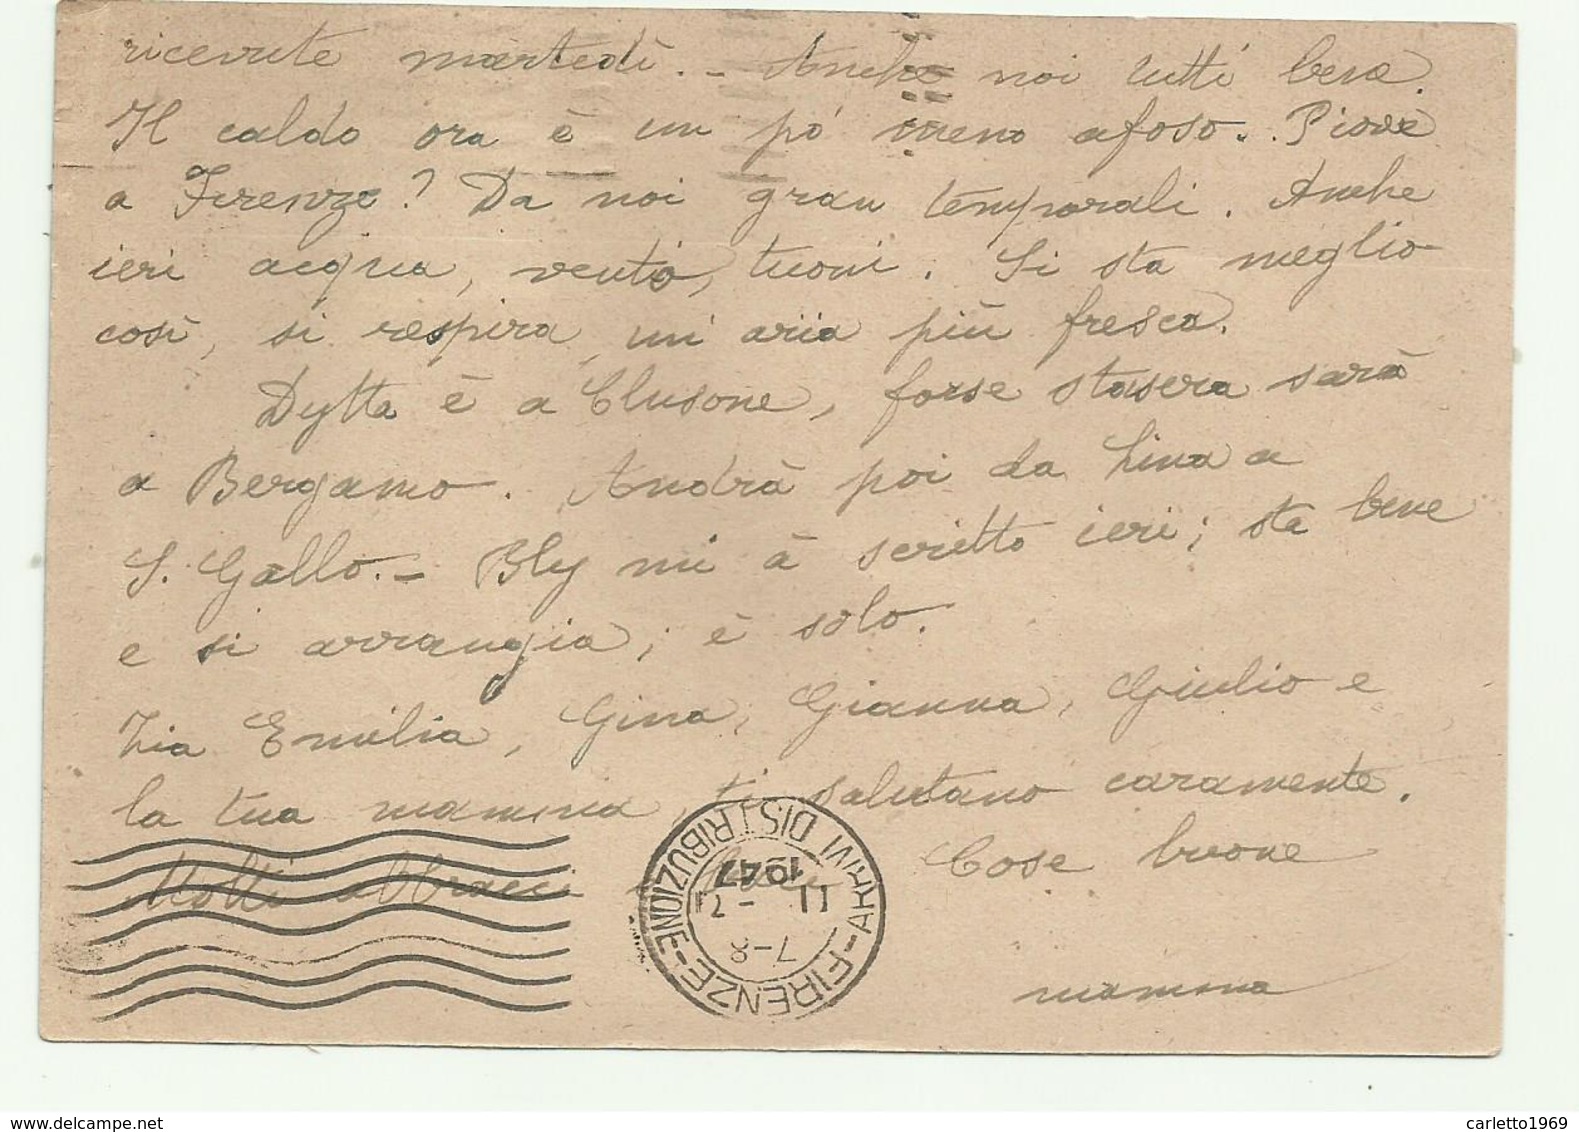 ricevute martedì. - Anche noi tutti bene.
Il caldo ora è un pó meno afoso. Piove
a Firenze? Da noi gran temporali. Anche
ieri acqua, vento, tuoni. Si sta meglio
così, si respira un'aria più fresca.
Dytta è a Clusone, forse stasera sarà
a Bergamo. Andrà poi da Lina a
S. Gallo. - Bly mi à scritto ieri; sta bene
e si arrangia; è solo.
Zia Emilia, Gina, Gianna, Giulio e
la tua mamma, ti salutano caramente.
Molti abbracci Cose buone
mamma
FIRENZE - ARRIVI DISTRIBUZIONE -
7-8
11 - 7
1947
carletto1969